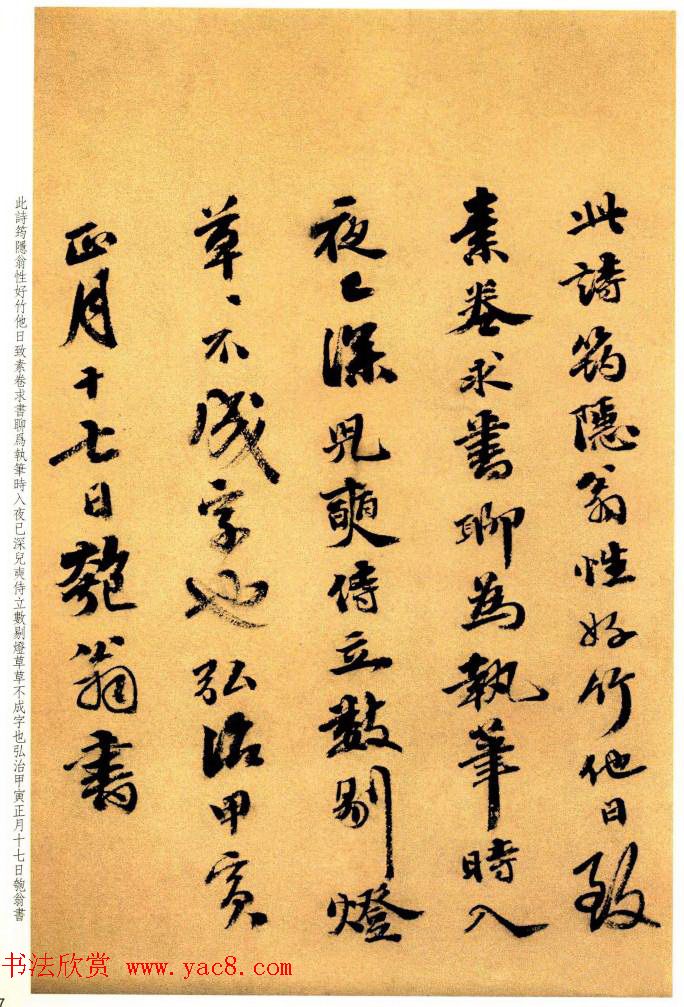 此詩筠隱翁性好竹他日致
素卷求書聊為執筆時入
夜已深兒奭侍立數剔燈
草〻不成字也弘治甲寅
正月十七日匏翁書
此詩筠隱翁性好竹他日致素卷求書聊爲執筆時入夜已深兒奭侍立數剔燈草草不成字也弘治甲寅正月十七日匏翁書
书法欣赏 www.yac8.com
7